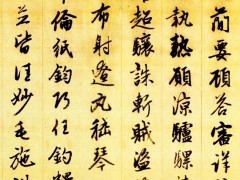 簡要顧答審詳
執熱願涼驢騾
超驤誅斬賊盜
布射遼丸嵇琴
倫紙鈞巧任釣
並皆佳妙毛施